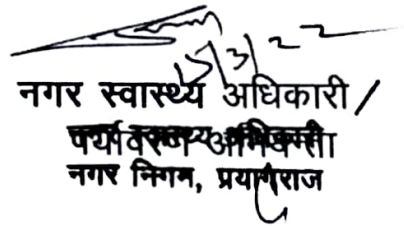 15/3/22
नगर स्वास्थ्य अधिकारी/
पर्यावरण अभियन्ता
नगर निगम, प्रयागराज